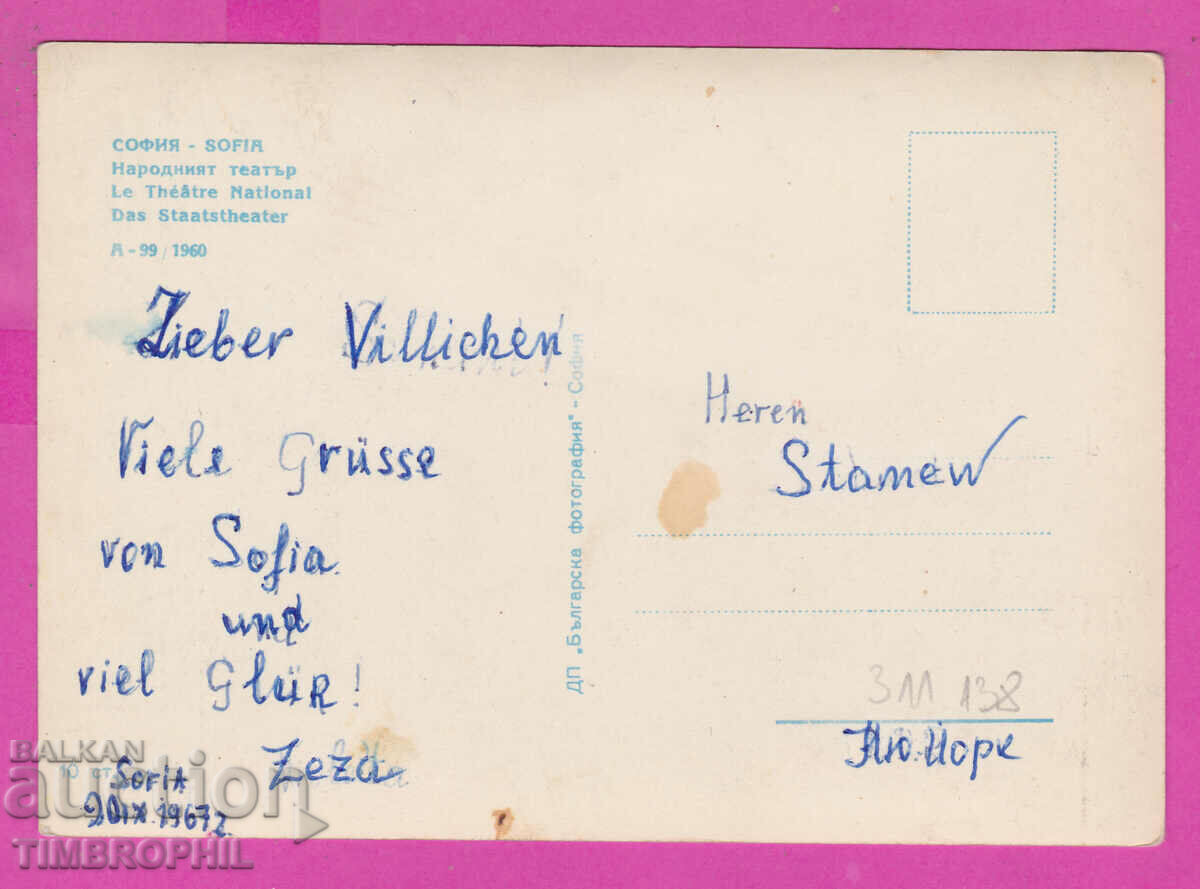 СОФИЯ - SOFIA
Народният театър
Le Théâtre National
Das Staatstheater
А - 99 / 1960
Lieber Villichen
Viele Grüsse
von Sofia
und
viel Glük!
Zeza
Sofia
IX 1967
10 ст.
ДП „Българска фотография" - София
Heren
Stamew
311 138
Ню Йорк
BALKAN
auction
TIMBROPHIL